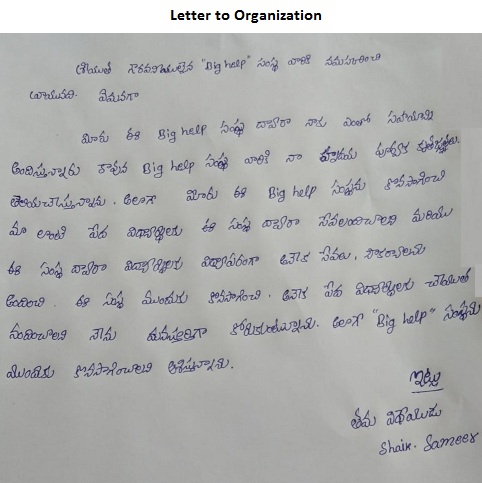 Letter to Organization
శ్రీయుత గౌరవనీయులైన "Big help" సంస్థ వారికి నమస్కరించి
వ్రాయునది. ఏమనగా
మీరు ఈ Big help సంస్థ ద్వారా నాకు ఎంతో సహాయాన్ని
అందిస్తున్నారు కావున Big help సంస్థ వారికి నా హృదయ పూర్వక కృతజ్ఞతలు
తెలియచేస్తున్నాను. అలాగే మీరు ఈ Big help సంస్థను కొనసాగించి
మా లాంటి పేద విద్యార్థులకు ఈ సంస్థ ద్వారా సేవలందించాలని మరియు
ఈ సంస్థ ద్వారా విద్యార్థులకు విద్యాపరంగా అనేక సేవలు, సౌకర్యాలను
అందించి. ఈ సంస్థ ముందుకు కొనసాగించి. అనేక పేద విద్యార్థులకు చేయూత
నందించాలని నేను మనస్ఫూర్తిగా కోరుకుంటున్నాను. అలాగే "Big help" సంస్థను
ముందుకు కొనసాగించాలని ఆశిస్తున్నాను.
ఇట్లు
తమ విధేయుడు
Shaik. Sameer